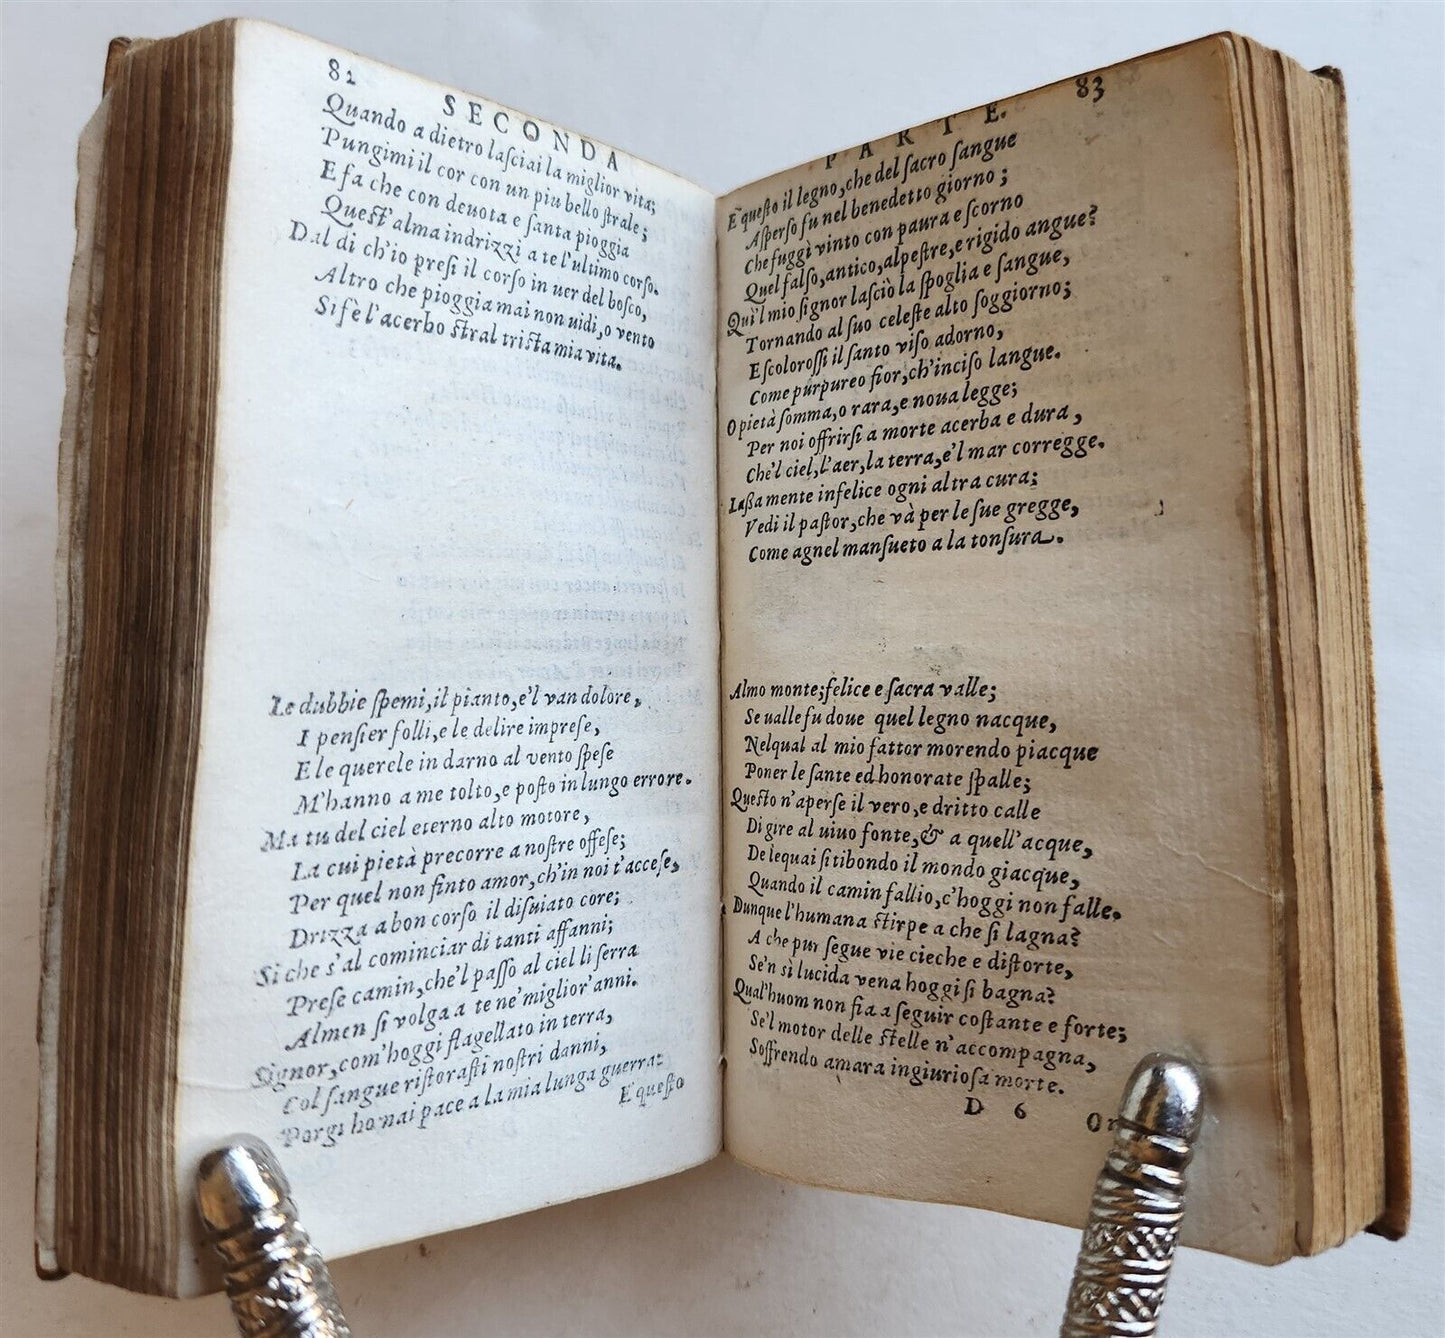 82
SECONDA
Quando a dietro laſciai la miglior vita;
Pungimi il cor con un piu bello ſtrale;
E fa che con deuota e ſanta pioggia
Queſt'alma indrizzi a te l'ultimo corſo.
Dal dì ch'io preſi il corſo in uer del boſco,
Altro che pioggia mai non uidi, o vento
Sifè l'acerbo ſtral triſta mia vita.
Le dubbie ſpemi, il pianto, e'l van dolore,
I penſier folli, e le delire impreſe,
E le querele in darno al vento ſpeſe
M'hanno a me tolto, e poſto in lungo errore.
Ma tu del ciel eterno alto motore,
La cui pietà precorre a noſtre offeſe;
Per quel non finto amor, ch'in noi t'acceſe,
Drizza a bon corſo il diſuiato core;
Si che s'al cominciar di tanti affanni;
Preſe camin, che'l paſſo al ciel li ſerra
Almen ſi volga a te ne' miglior' anni.
Signor, com'hoggi flagellato in terra,
Col ſangue riſtoraſti noſtri danni,
Porgi homai pace a la mia lunga guerra:
E queſto
83
PARTE.
E queſto il legno, che del ſacro ſangue
Aſperſo fu nel benedetto giorno;
Che fuggì vinto con paura e ſcorno
Quel falſo, antico, alpeſtre, e rigido angue?
Quì'l mio ſignor laſciò la ſpoglia e ſangue,
Tornando al ſuo celeſte alto ſoggiorno;
E ſcoloroſſi il ſanto viſo adorno,
Come purpureo fior, ch'inciſo langue.
O pietà ſomma, o rara, e noua legge;
Per noi offrirſi a morte acerba e dura,
Che'l ciel, l'aer, la terra, e'l mar corregge.
Laßa mente infelice ogni altra cura;
Vedi il paſtor, che và per le ſue gregge,
Come agnel manſueto a la tonſura.
Almo monte; felice e ſacra valle;
Se ualle fu doue quel legno nacque,
Nel qual al mio fattor morendo piacque
Poner le ſante ed honorate ſpalle;
Queſto n'aperſe il vero, e dritto calle
Di gire al uiuo fonte, & a quell'acque,
De le quai ſitibondo il mondo giacque,
Quando il camin fallio, c'hoggi non falle.
Dunque l'humana ſtirpe a che ſi lagna?
A che pur ſegue vie cieche e diſtorte,
Se'n sì lucida vena hoggi ſi bagna?
Qual'huom non fia a ſeguir coſtante e forte;
Se'l motor delle ſtelle n'accompagna,
Soffrendo amara ingiurioſa morte.
D 6
Or